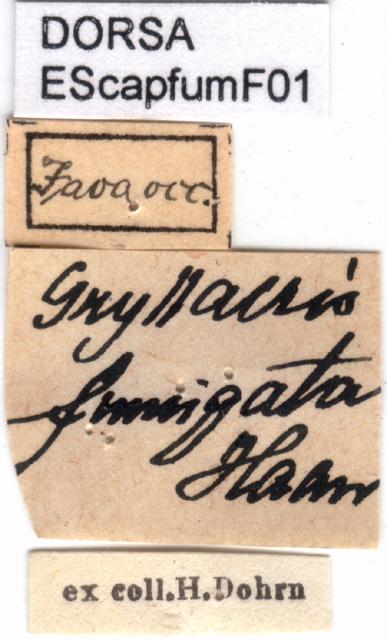 DORSA
EScapfumF01
Java occ.
Gryllacris
fumigata
Haan
ex coll.H.Dohrn